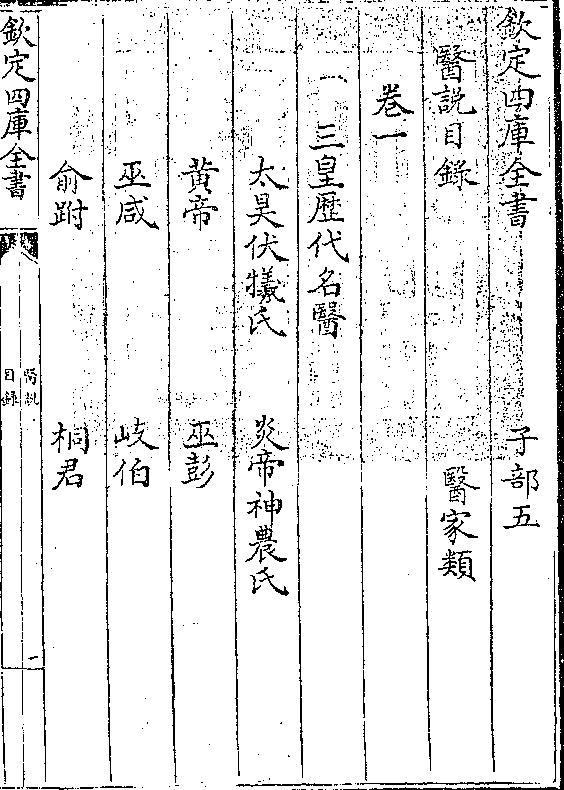 欽定四庫全書　子部五
醫說目錄　醫家類
卷一
三皇歷代名醫
太昊伏犧氏　炎帝神農氏
黃帝　巫彭
巫咸　岐伯
俞跗　桐君
欽定四庫全書
醫說
目錄